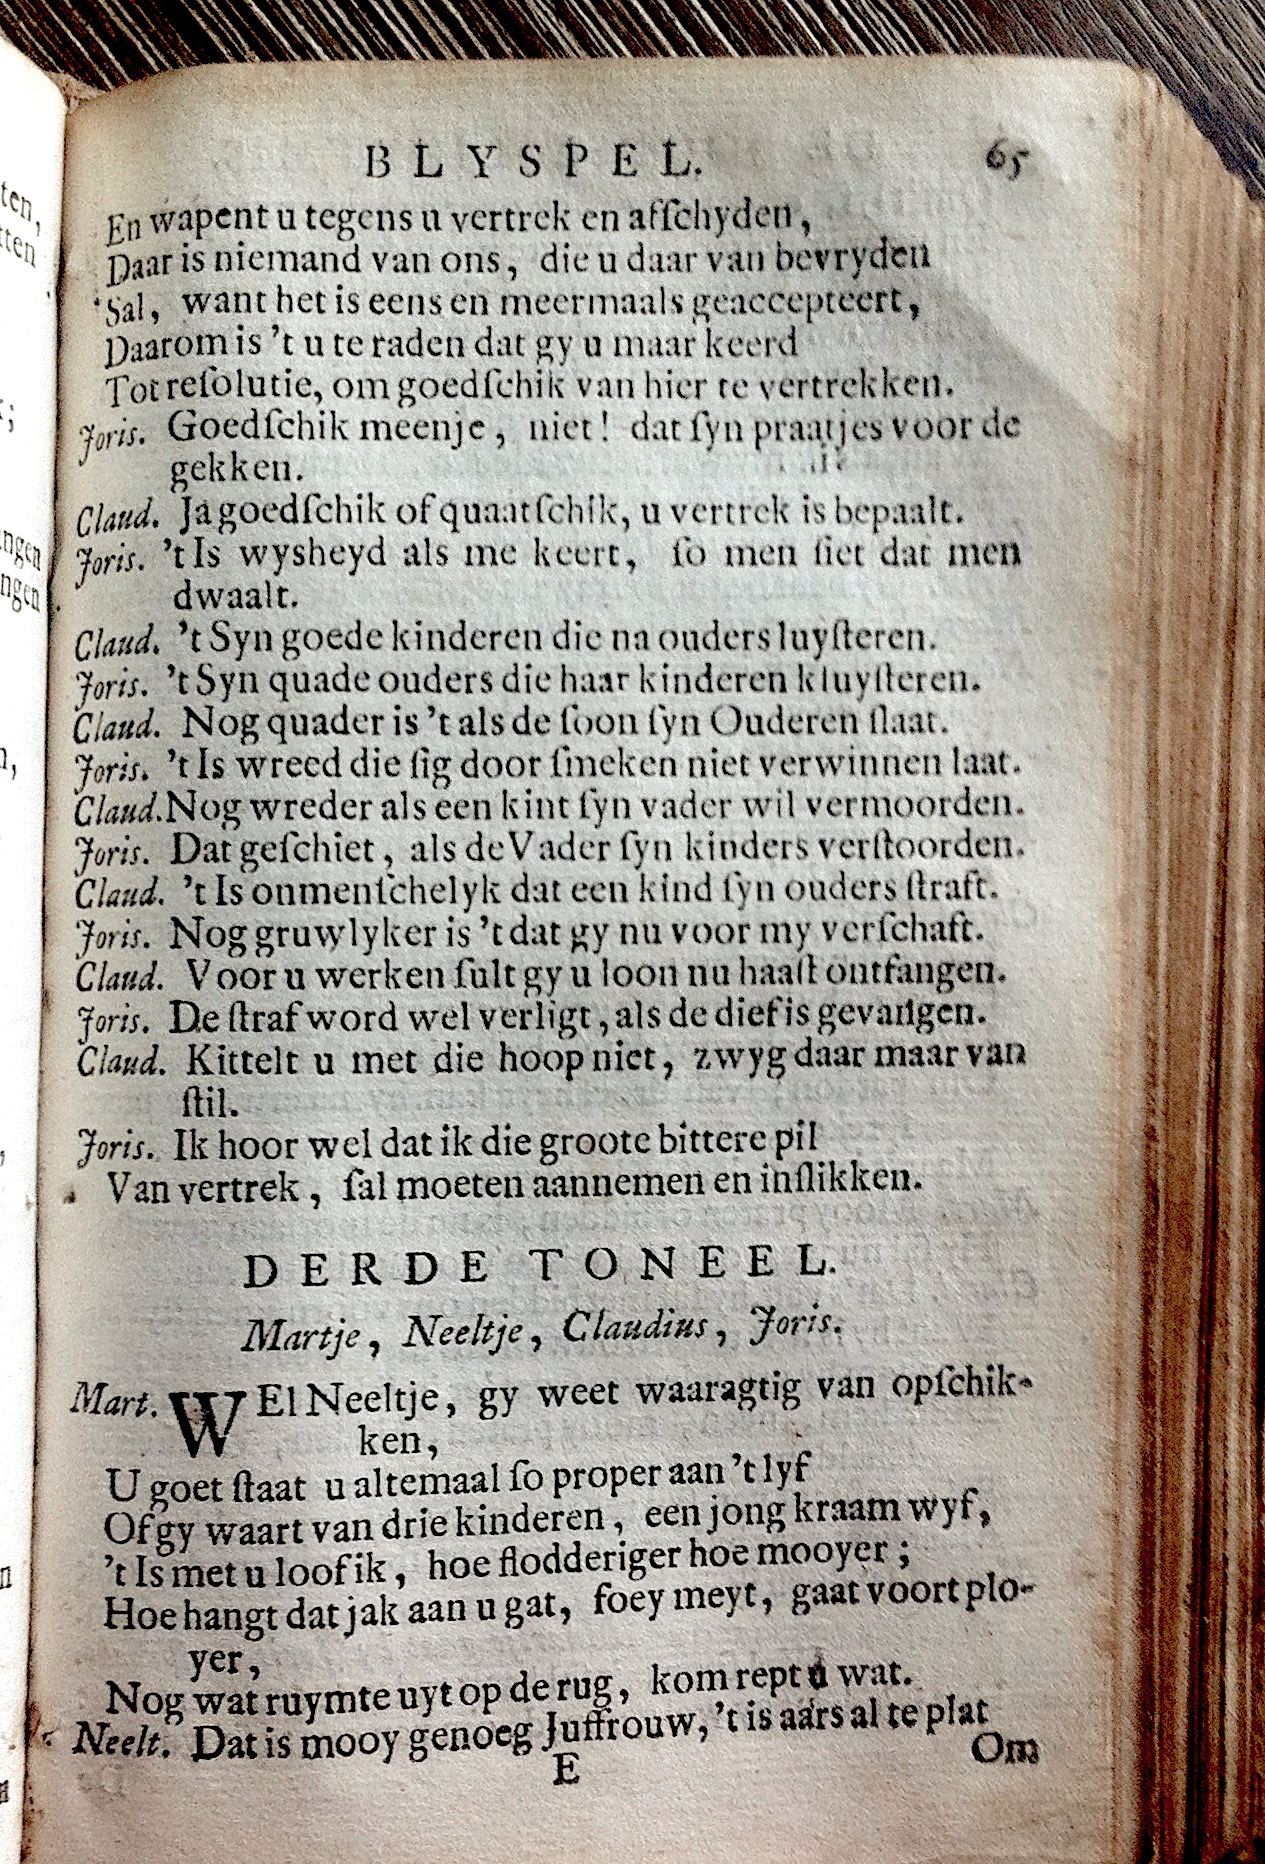 BLYSPEL. 65
En wapent u tegens u vertrek en afſchyden,
Daar is niemand van ons, die u daar van bevryden
Sal, want het is eens en meermaals geaccepteert,
Daarom is 't u te raden dat gy u maar keerd
Tot reſolutie, om goedſchik van hier te vertrekken.
Joris. Goedſchik meenje, niet! dat ſyn praatjes voor de
gekken.
Claud. Ja goedſchik of quaatſchik, u vertrek is bepaalt.
Joris. 't Is wysheyd als me keert, ſo men ſiet dat men
dwaalt.
Claud. 't Syn goede kinderen die na ouders luyſteren.
Joris. 't Syn quade ouders die haar kinderen kluyſteren.
Claud. Nog quader is 't als de ſoon ſyn Ouderen ſlaat.
Joris. 't Is wreed die ſig door ſmeken niet verwinnen laat.
Claud. Nog wreder als een kint ſyn vader wil vermoorden.
Joris. Dat geſchiet, als de Vader ſyn kinders verſtoorden.
Claud. 't Is onmenſchelyk dat een kind ſyn ouders ſtraft.
Joris. Nog gruwlyker is 't dat gy nu voor my verſchaft.
Claud. Voor u werken ſult gy u loon nu haaſt ontfangen.
Joris. De ſtraf word wel verligt, als de dief is gevangen.
Claud. Kittelt u met die hoop niet, zwyg daar maar van
ſtil.
Joris. Ik hoor wel dat ik die groote bittere pil
Van vertrek, ſal moeten aannemen en inſlikken.
DERDE TONEEL.
Martje, Neeltje, Claudius, Joris.
Mart. WEl Neeltje, gy weet waaragtig van opſchik-
ken,
U goet ſtaat u altemaal ſo proper aan 't lyf
Of gy waart van drie kinderen, een jong kraam wyf,
't Is met u loof ik, hoe ſlodderiger hoe mooyer;
Hoe hangt dat jak aan u gat, foey meyt, gaat voort plo-
yer,
Nog wat ruymte uyt op de rug, kom rept u wat.
Neelt. Dat is mooy genoeg Juffrouw, 't is aars al te plat
E Om